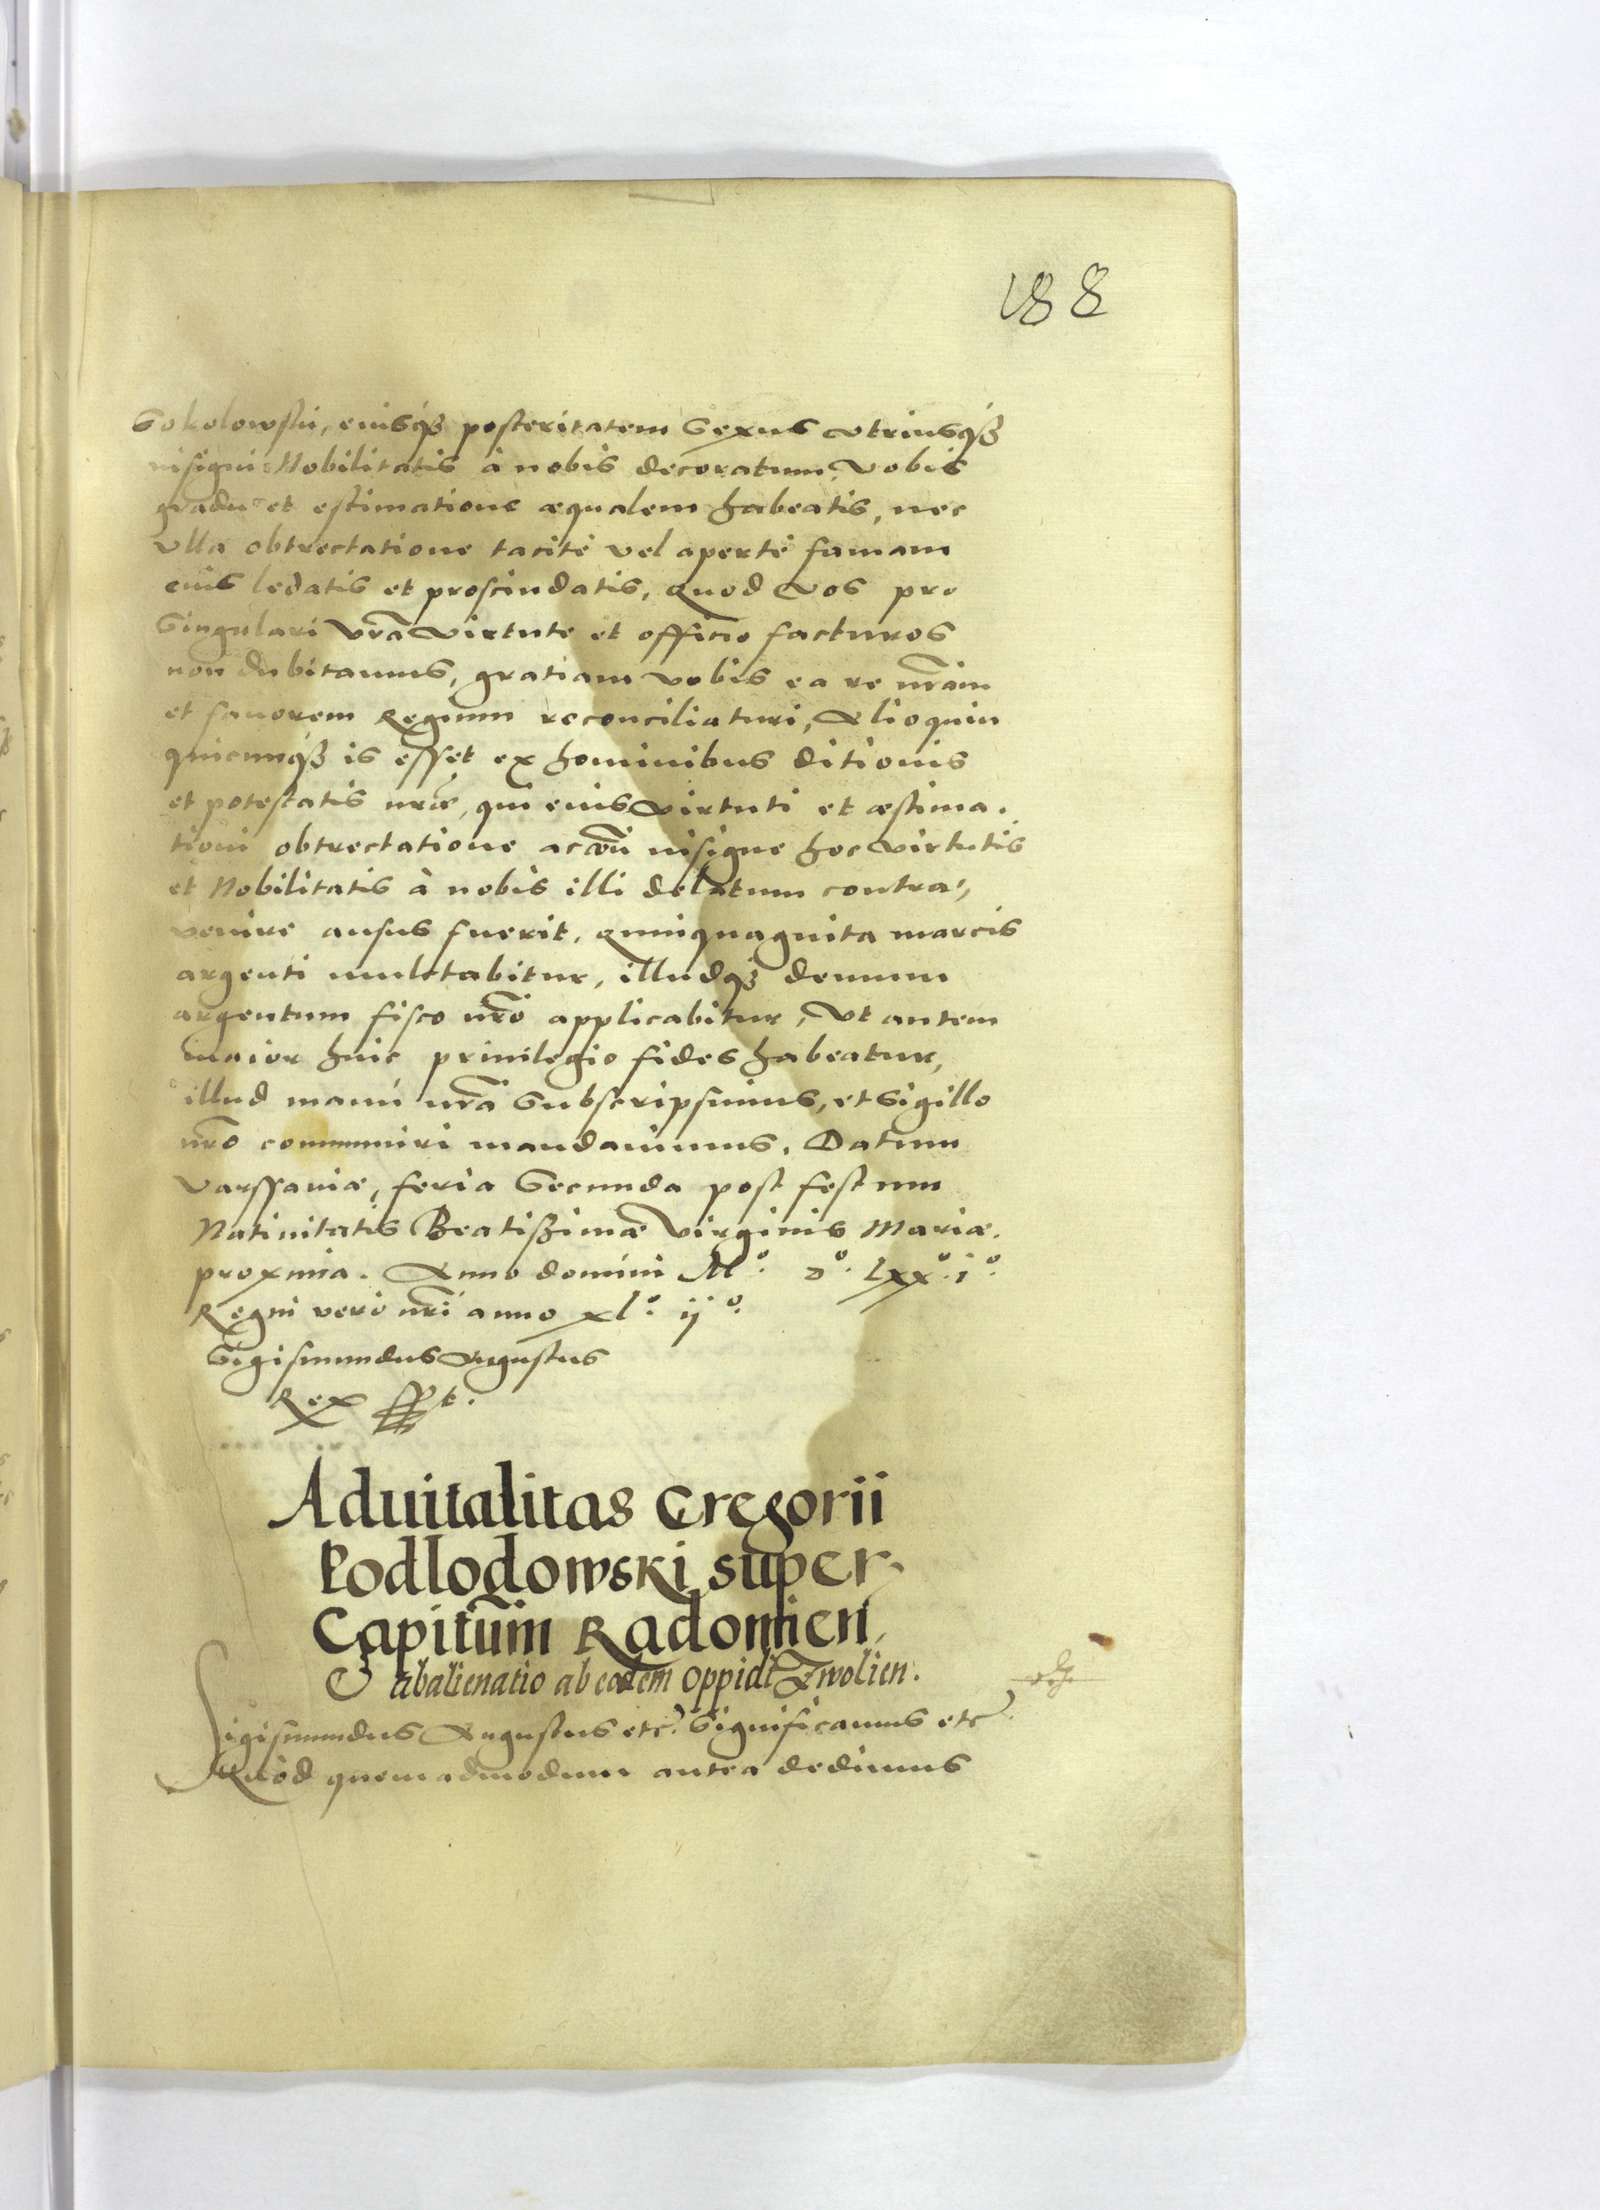 188
Sokolowski, eiusq꜔ posteritatem Sexus utriusq꜔
insigni Nobilitatis à nobis decoratum, Vobis
gradu et estimatione æqualem habeatis, nec
ulla obtrectatione tacitè vel apertè famam
eius ledatis et proscindatis, Quod Vos pro
Singulari vr̃a Virtute et officio facturos
non dubitamus, gratiam vobis ea re nr̃am
et fauorem Regium reconciliaturi, Alioquin
quicunq꜔ is esset ex hominibus ditionis
et potestatis nr̃æ, qui eius Virtuti et æstima.
tioni obtrectatione insigne hoc Virtutis
et Nobilitatis à nobis illi delatum contra,,
venire ausus fuerit, Quinquaguita marcis
argenti mulctabitur, illudq꜔ demum
argentum fisco nr̃o applicabitur, Vt autem
maior huic priuilegio fides habeatur,
illud manú nr̃a Subscripsimus, et Sigillo
nr̃o communiri mandauimus. Datum
Varssauiæ, feria Secunda post festum
Natiuitatis Beatißimæ Virginis Mariæ.
proxima. Anno domini Mº. Dº. Lxxº. iº.
Regni verò nr̃i anno xlº. ijº.
Sigismundus Augustus
Rex sst.
Aduitalitas Gregorii
Podlodowski super
Capitũm Radomien,
Et abalienatio ab eodem oppidi Zwolien.
Sigismundus Augustus etc. Significamus etc.
Quòd quemadmodum antea dedimus